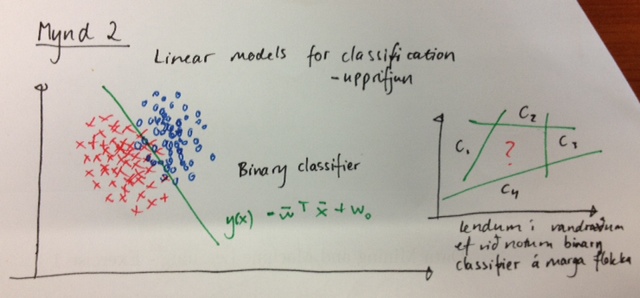 Mynd 2
Linear models for classification
- upprifjun
Binary classifier
y(x) = w̄ᵀ x̄ + w₀
C₂
C₁
?
C₃
C₄
lendum í vandræðum
ef við notum binary
classifier á marga flokka